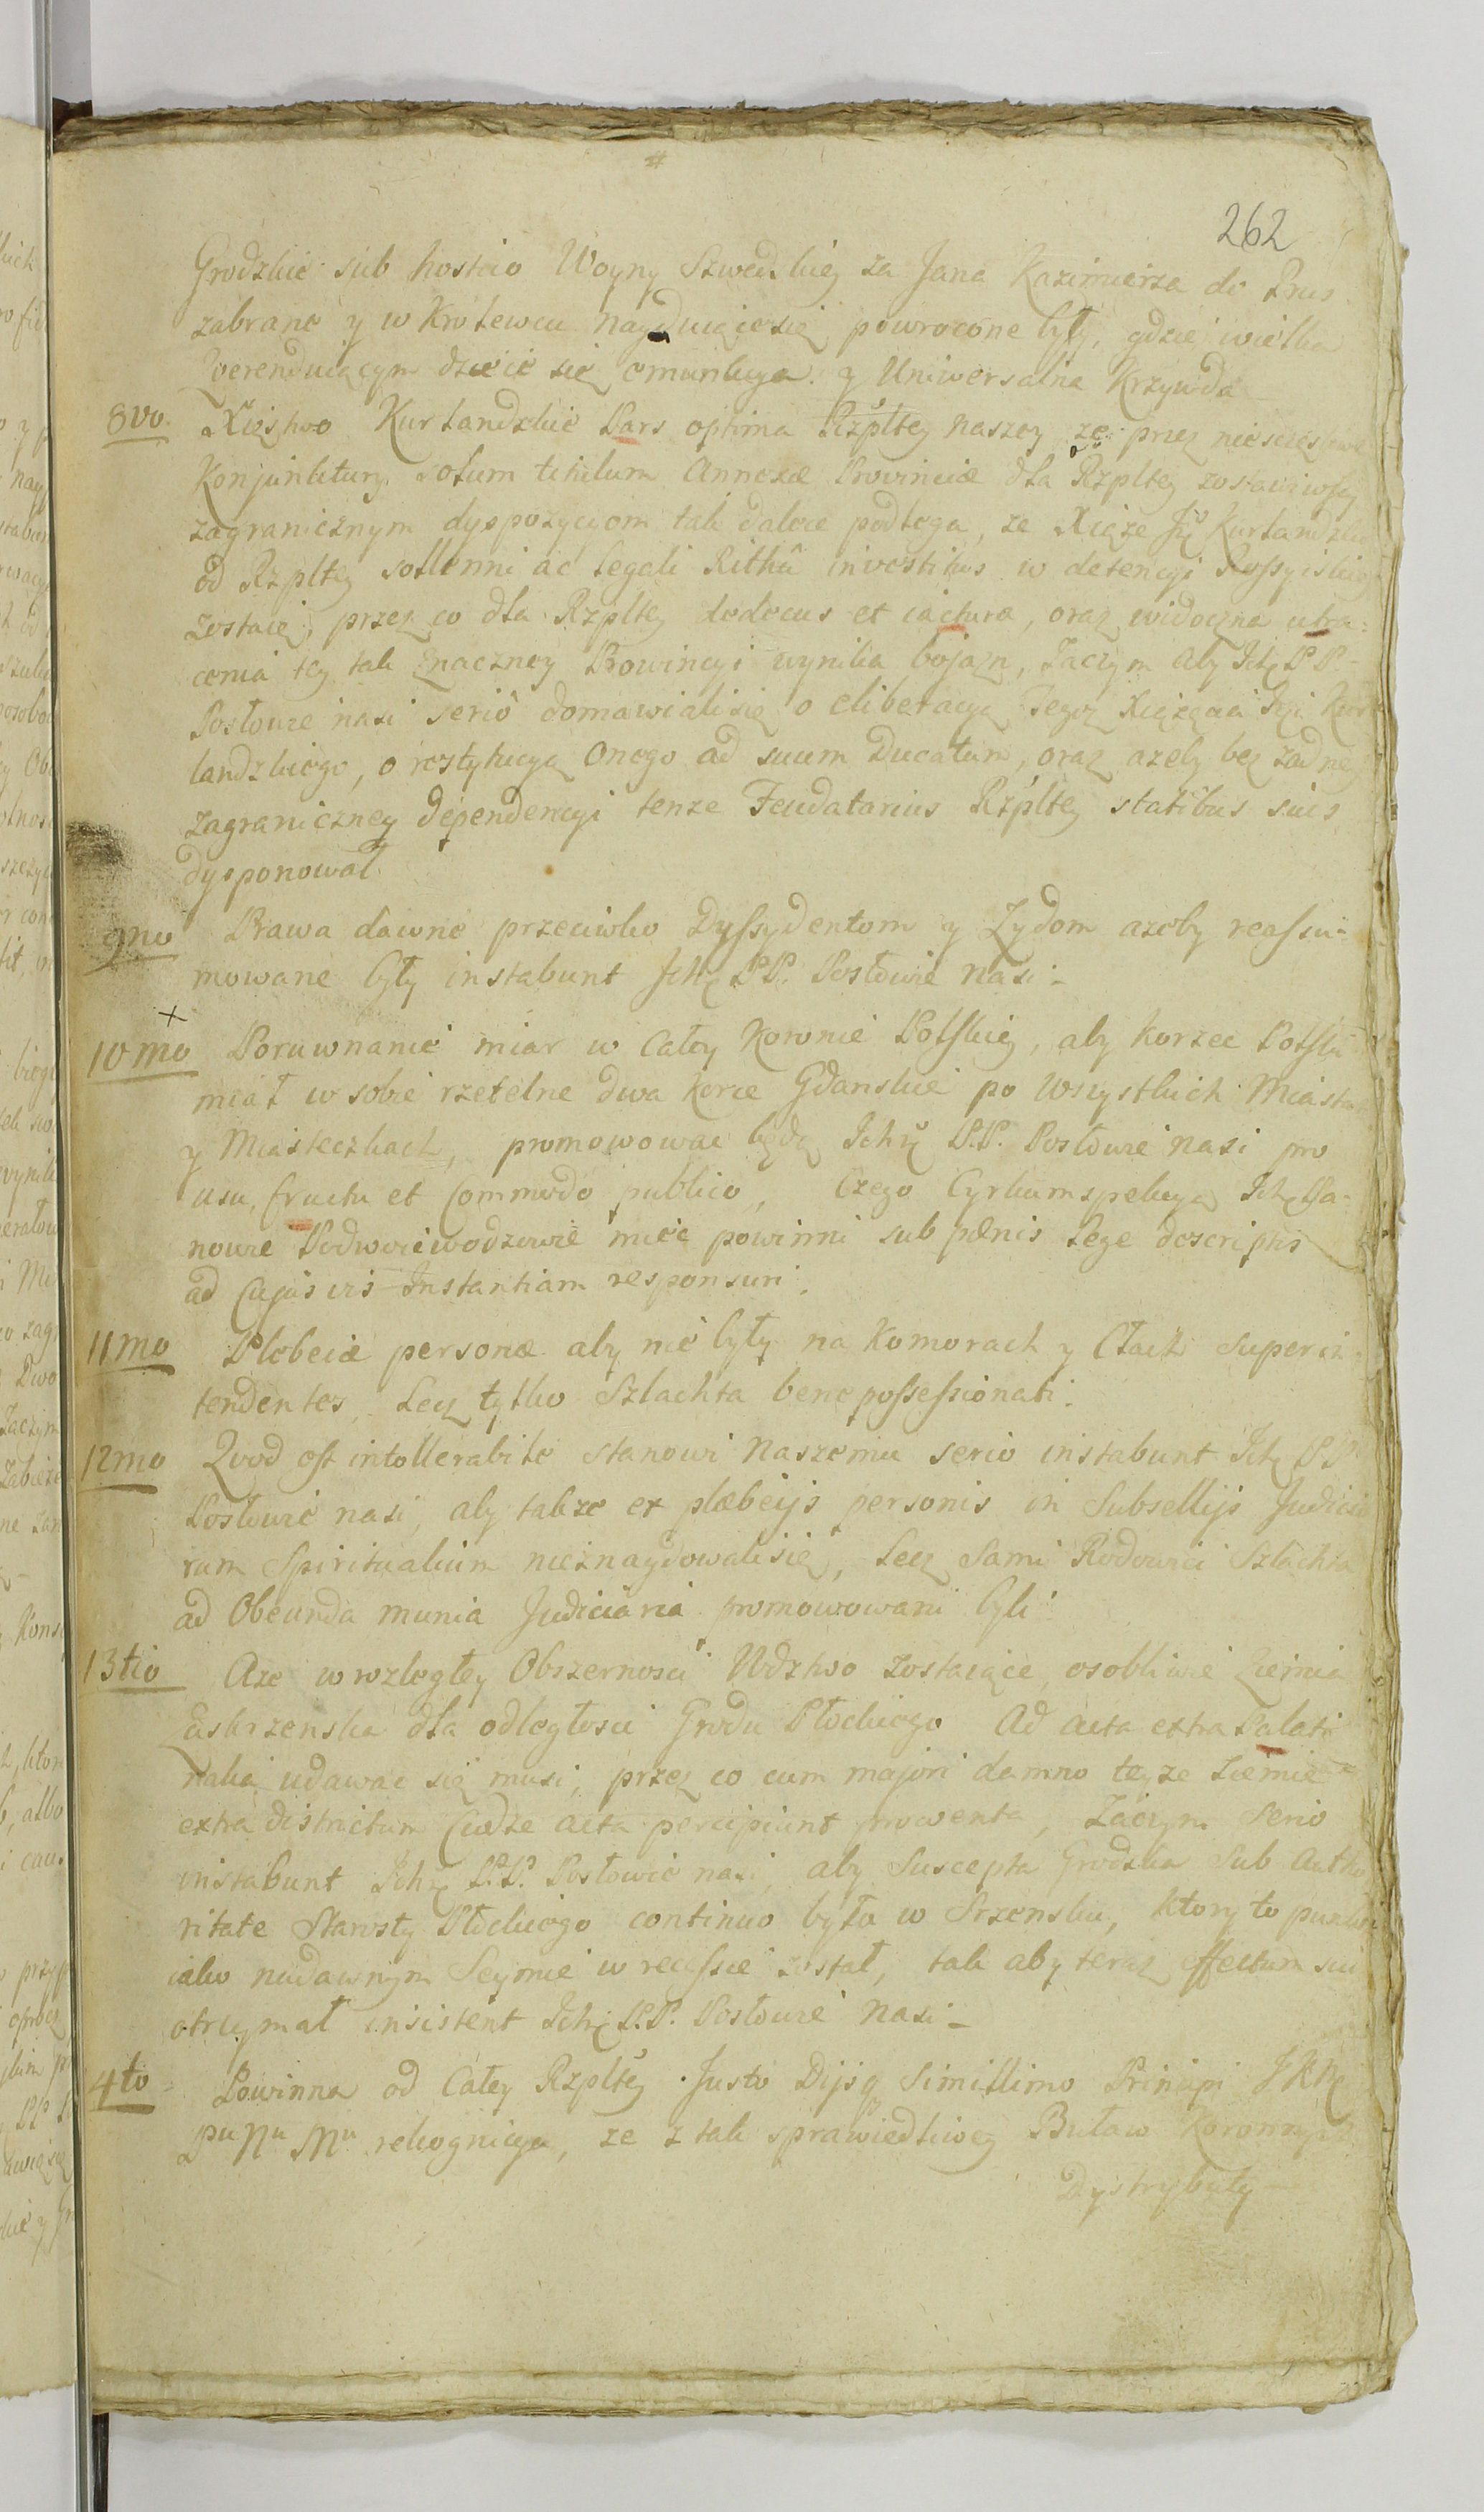 262
Grodzkie sub hostico Woyny Szwedzkiey za Jana Kazimierza do Prus
zabrane y w Krolewcu nayduiącesię powrocone były, gdzie wielka
Qverenduiącym dzieie się y Uniwersalna Krzywda
8vo. Xięstwo Kurlandzkie Pars optima Rzpltey naszey ze przez niesczęsliwe
Konjunktury Solum titulum Annexæ Provinciæ dla Rzpltey zostawiwszy
zagranicznym dyspozycyom tak dalece podlega, ze Xiąze Jmć Kurlandzki
od Rzpltey sollenni ac legali Rithû investitus w detencyi Rossyiskiey
zostaie, przez co dla Rzpltey dedecus et iactura, oraz widoczna utra=
cenia tey tak znaczney Prowincyi wynika bojazn, Zaczym aby Ichm PP.
Posłowie nasi seriò domawialisię o eliberacyą Tegoz Xiązęcia Jmci Kur
landzkiego, o restytucyą Onego ad suum Ducatum, oraz azeby bez zadney
zagraniczney dependencyi tenze Feudatarius Rzpltey statibus suis
dysponował
9no Prawa dawne przeciwko Dyssydentom y Zydom azeby reassu=
mowane były instabunt Ichm PP. Posłowie nasi.
10mo Porownanie miar w Całey Koronie Polskiey, aby korzec Polski
miał w sobie rzetelne dwa korce Gdanskie po Wszystkich Miastach
y Miasteczkach, promowowac będą Ichm P.P. Posłowie nasi pro
usu, fructu et Commodo publico, Czego Cyrkumspekcyą Ichm Pa=
nowie Podwoiewodzowie miec powinni sub pœnis Lege descriptis
ad Cujus vis Instantiam responsuri.
11mo Plebeiæ personæ aby nie były na Komorach y Cłach Superin
tendentes, Lecz tylko Szlachta bene possessionati.
12mo Qvod est intollerabile stanowi Naszemu serio instabunt Ichm PP
Posłowie nasi, aby takze ex plæbeijs personis in Subsellijs Judicio
rum Spiritualium nieznaydowalisię, Lecz Sami Rodowici Szlachta
ad Obeunda munia Judiciaria promowowani byli.
13tio Aze w rozległey Obszernosci Wdztwo zostaiące, osobliwie Ziemia
Zaskrzenska dla odległosci Grodu Płockiego Ad acta extra Palati
nalia udawac się musi, przez co cum majori damno teyze Ziemie
extra districtum Cudze acta percipiunt proventa, Zaczym Serio
instabunt Ichm P.P. Posłowie nasi, aby Suscepta Grodzka Sub Autho
ritate Starosty Płockiego continuo była w Srzensku, ktory to punkt
iako na dawnym Seymie w recessie został, tak aby teraz effectum sui
otrzymał insistent Ichm P.P. Posłowie Nasi
4to Powinna od Całey Rzpltey Justo Dijsq Simillimo Principi JKM
Pu Nu Mu rekognicya, ze z tak sprawiedliwey Buław Koronnych
Dystrybuty